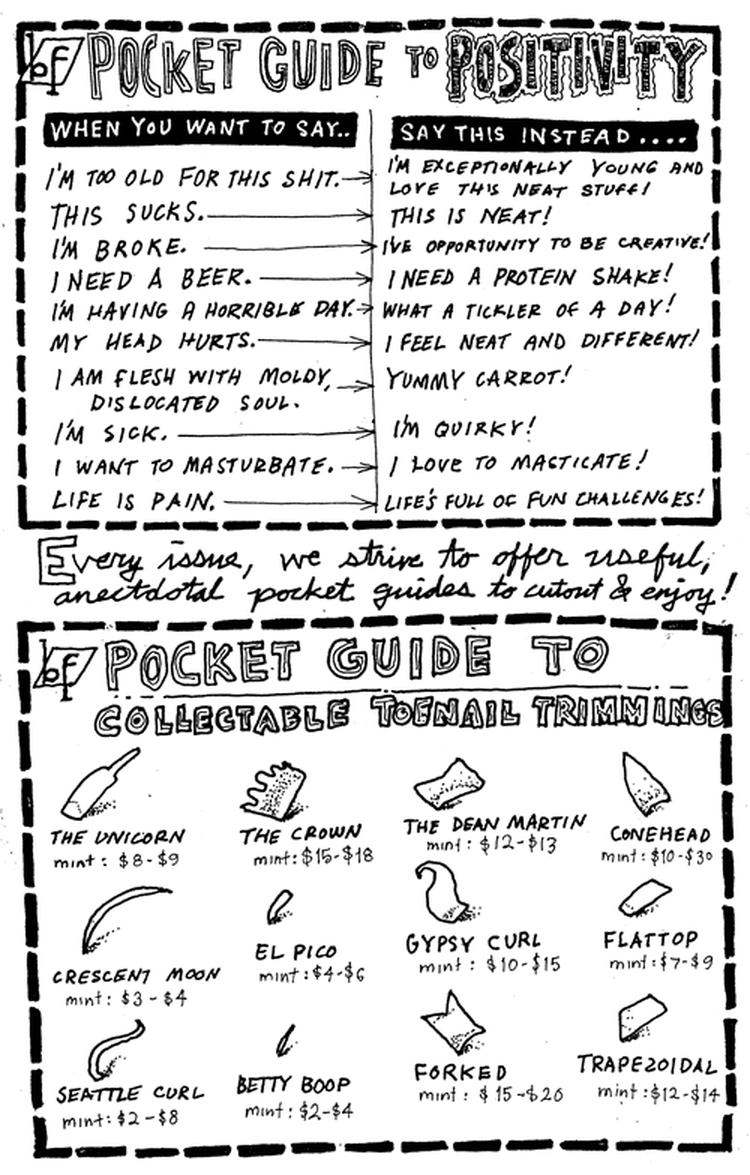 bf POCKET GUIDE TO POSITIVITY
WHEN YOU WANT TO SAY..
SAY THIS INSTEAD....
I'M TOO OLD FOR THIS SHIT.
I'M EXCEPTIONALLY YOUNG AND
LOVE THIS NEAT STUFF!
THIS SUCKS.
THIS IS NEAT!
I'M BROKE.
I'VE OPPORTUNITY TO BE CREATIVE!
I NEED A BEER.
I NEED A PROTEIN SHAKE!
I'M HAVING A HORRIBLE DAY.
WHAT A TICKLER OF A DAY!
MY HEAD HURTS.
I FEEL NEAT AND DIFFERENT!
I AM FLESH WITH MOLDY,
DISLOCATED SOUL.
YUMMY CARROT!
I'M SICK.
I'M QUIRKY!
I WANT TO MASTURBATE.
I LOVE TO MASTICATE!
LIFE IS PAIN.
LIFE'S FULL OF FUN CHALLENGES!
Every issue, we strive to offer useful,
anectdotal pocket guides to cutout & enjoy!
bf POCKET GUIDE TO
COLLECTABLE TOENAIL TRIMMINGS
THE UNICORN
mint: $8-$9
THE CROWN
mint: $15-$18
THE DEAN MARTIN
mint: $12-$13
CONEHEAD
mint: $10-$30
CRESCENT MOON
mint: $3-$4
EL PICO
mint: $4-$6
GYPSY CURL
mint: $10-$15
FLATTOP
mint: $7-$9
SEATTLE CURL
mint: $2-$8
BETTY BOOP
mint: $2-$4
FORKED
mint: $15-$20
TRAPEZOIDAL
mint: $12-$14